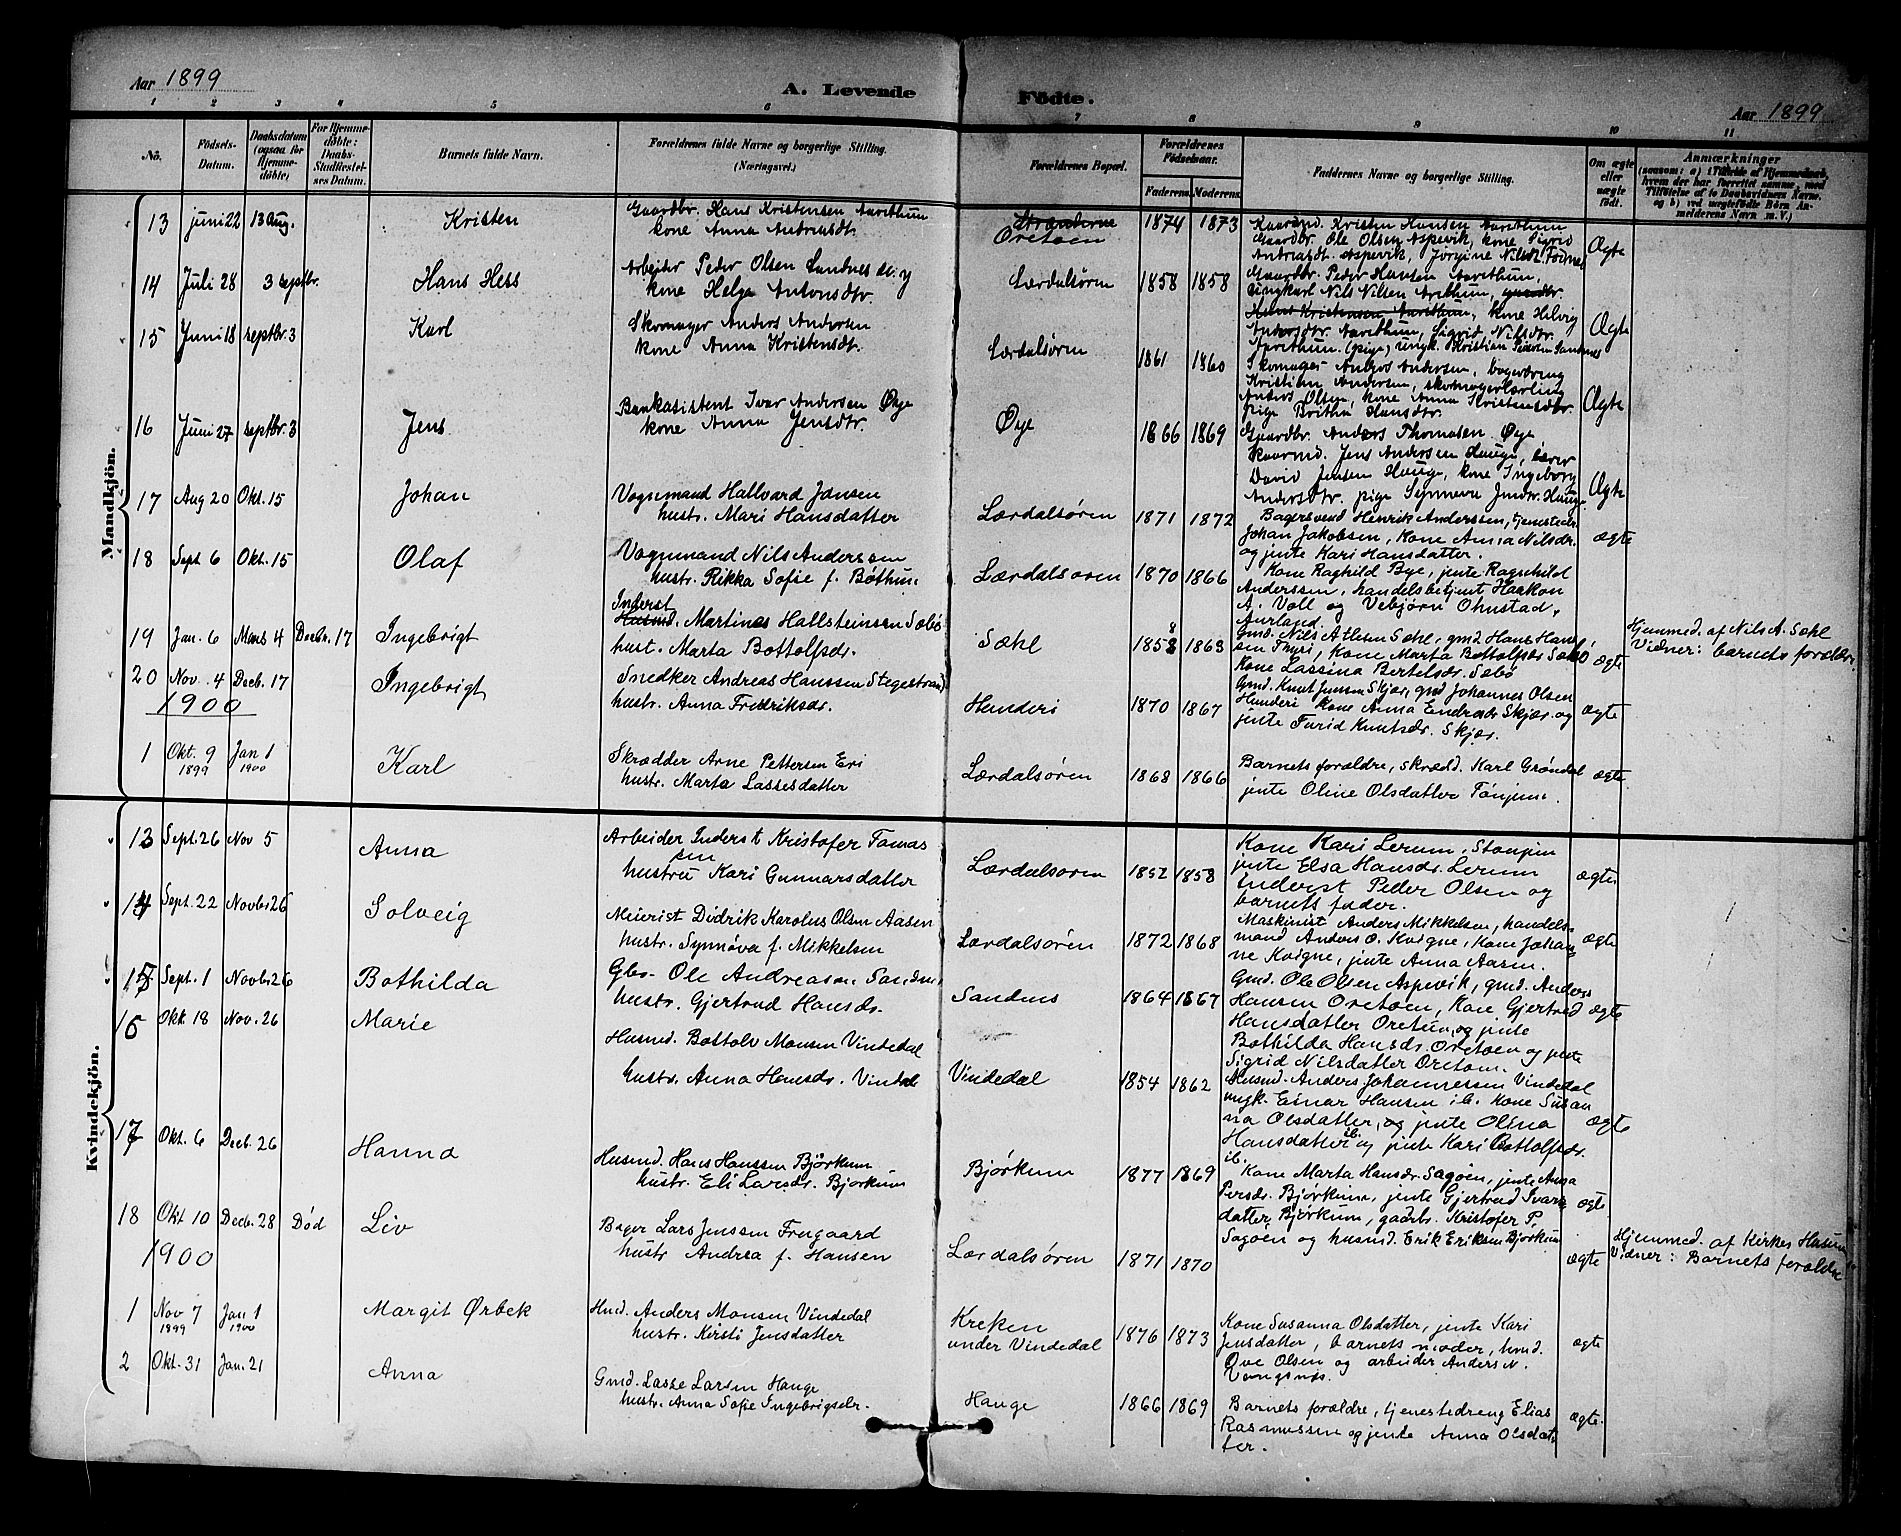 Aar 1899
A. Levende Födte.
Aar 1899
1 2 3 4 5 6 7 8 9 10 11
No.
Födsels-Datum.
Daabsdatum (ogsaa for Hjemmedöbte)
For Hjemmedöbte: Daabs-Stadfæstelses Datum.
Barnets fulde Navn.
Forældrenes fulde Navne og borgerlige Stilling. (Næringsvei.)
Forældrenes Bopæl.
Forældrenes Födselsaar.
Faderens. Moderens.
Faddernes Navne og borgerlige Stilling.
Om ægte eller uægte födt.
Anmærkninger
(saasom: a) i Tilfælde af Hjemmedaab, hvem der har forrettet samme, med Tilföielse af to Daabsvidners Navne, og b) ved uægtefödte Börn Anmelderens Navn m. V.)
Mandkjön.
13 juni 22 13 Aug. Kristen
Gaardbr. Hans Kristensen Aarethun
kone Anna Andriasdt.
Strænderne
Oretoen
1874 1873
Kaarmd. Kristen Hansen Aarethun
Gaardbr. Ole Olsen Aspevik, kone Sigrid
Andriasdt. Aspevik, Jörgine Nilsdt. Tönne
Ægte
14 Juli 28 3 septbr. Hans Hess
Arbejder Peder Olsen Sandnes
kone Helga Antonsdtr.
Lærdalsören 1858 1858
Gaardbr. Peder Hansen Aarethun,
Ungkarl Nils Nilsen Aarethun, gaardbr.
Helmer Kristensen Aarethun, kone Helvig
Andersdtr. Aarethun, Sigrid Nilsdtr.
Aarethun. (pige) ungk. Kristian Pedersen Sandnes
Ægte
15 Juni 18 septbr. 3 Karl
Skomager Anders Andersen
kone Anna Kristensdt.
Lærdalsören 1861 1860
Skomager Anders Andersen, bogerdreng
Kristian Andersen, skomagerlærling
Anders Olsen, kone Anna Kristensdtr.
pige Britha Hansdtr.
Ægte
16 Juni 27 septbr. 3 Jens
Bankasistent Ivar Andersen Øye
kone Anna Jensdtr.
Øye 1866 1869
Gaardbr. Anders Thomasen Øye,
Kaarmd. Jens Andersen Hauge, lærer
David Jensen Hauge, kone Ingeborg
Andersdtr. pige Synneva Jensdtr. Hauge
Ægte
17 Aug 20 Okt. 15 Johan
Vognmand Hallvard Jansen
hustr. Mari Hansdatter
Lærdalsören 1871 1872
Bagersvend Henrik Anderssen, tjenestedr.
Johan Jakobsen, Kone Anna Nilsdr.
og jente Kari Hansdatter.
ægte
18 Sept 6 Okt. 15 Olaf
Vognmand Nils Anderssen
hustr. Rikka Sofie f. Böthun
Lærdalsoren 1870 1866
Kone Raghild Bye, jente Ragnhild
Anderssen, handelsbetjent Haakon
A. Voll og Vebjörn Ohnstad,
Aurland.
19 Jan. 6 Marts 4 Decbr. 17 Ingebrigt
Inderst
Husmd. Martines Hallsteinsen Sæbö
hust. Marta Bottolfsdr.
Sæhl 1858 1863
gmd. Nils Atlesen Sæhl, gmd. Hans Han-
sen Thyri, Kone Marta Bottolfsdr. Sæbö
Kone Lassina Bertelsdr. Sæbö
ægte
Hjemmed. af Nils A. Sæhl
Vidner: barnets forældre
20 Nov. 4 Decb. 17 Ingebrigt
Snedker Andreas Hanssen Stegestrand
hustr. Anna Fredriksdr.
Hunderi 1870 1867
Gmd. Knut Jensen Skjær, gmd Johannes Olsen
Hunderi Kone Anna Endresdr Skjær og
jente Turid Knutsdr. Skjær.
ægte
1900
1 Okt. 9 1899 Jan 1 1900 Karl
Skrædder Arne Pettersen Eri
hustr. Marta Lassesdatter
Lærdalsören 1868 1866
Barnets forældre, skrædd. Karl Gröndal
jente Oline Olsdatter Tönjum.
ægte
Kvindekjön.
13 Sept. 26 Nov 5 Anna
Arbeider Inderst Kristofer Tomas
sen
hustru Kari Gunnarsdatter
Lærdalsoren 1852 1858
Kone Kari Lerum, Stonjum
jente Elsa Hansdr. Lerum
Inderst Peder Olsen og
barnets fader.
ægte
14 Sept. 22 Novbr. 26 Solveig
Meierist Didrik Karolus Olsen Aasen
hustr. Synnöva f. Mikkelsen
Lærdalsören 1872 1868
Maskinist Anders Mikkelsen, handels-
mand Anders O. Kvigne, Kone Johan
ne Kvigne, jente Anna Aasen.
ægte
15 Sept. 1 Novbr. 26 Bothilda
Gbr. Ole Andreasen Sandnes
hustr. Gjertrud Hansdr.
Sandnes 1864 1867
Gmd. Ole Olsen Aspevik, gmd. Anders
Hansen Oretoen, Kone Gjertrud
Hansdatter Oretun, og jente
Bothilda Hansdr. Oretoen og jente
Sigrid Nilsdatter Oretoen.
ægte
16 Okt. 18 Nov. 26 Marie
Husmd. Bottolv Monsen Vindedal
hustr. Anna Hansdr. Vindedal
Vindedal 1854 1862
Husmd. Anders Johannessen Vindedal
ungk. Einar Hansen ib. Kone Susan
na Olsdatter, og jente Olina
Hansdatter ib. og jente Kari Bottolfsdr.
ib.
ægte
17 Okt. 6 Decb. 26 Hanna
Husmd. Hans Hanssen Björkum
hustr. Eli Larsdr. Björkum
Bjørkum 1877 1869
Kone Marta Hansdr. Sagöen, jente Anna
Persdr. Björkum, jente Gjertrud Ivars
datter Björkum, gaarbr. Kristofer P.
Sagöen og husmd. Erik Eriksen Björkum
ægte
18 Okt 10 Decb. 28 Död Liv
Bager Lars Jenssen Frugaard
hustr Andrea f. Hansen
Lærdalsören 1871 1870
ægte
Hjemmed. af Kirkes. Husum
Vidner: Barnets forældre
1900
1 Nov 7 1899 Jan 1 1900 Margit Ørbek
Hmd. Anders Monsen Vindedal
hustr. Kirsti Jensdatter
Kreken
under Vindedal
1876 1873
Kone Susanna Olsdatter, jente Kari
Jensdatter, barnets moder, hmd.
Ove Olsen og arbeider Anders N.
Vangsnes.
ægte
2 Okt. 31 Jan. 21 Anna
Gmd. Lasse Larsen Hauge
hustr. Anna Sofie Ingebrigtsdr.
Hauge 1866 1869
Barnets forældre, tjenestedreng Elias
Rasmussen og jente Anna Olsdat-
ter.
ægte.